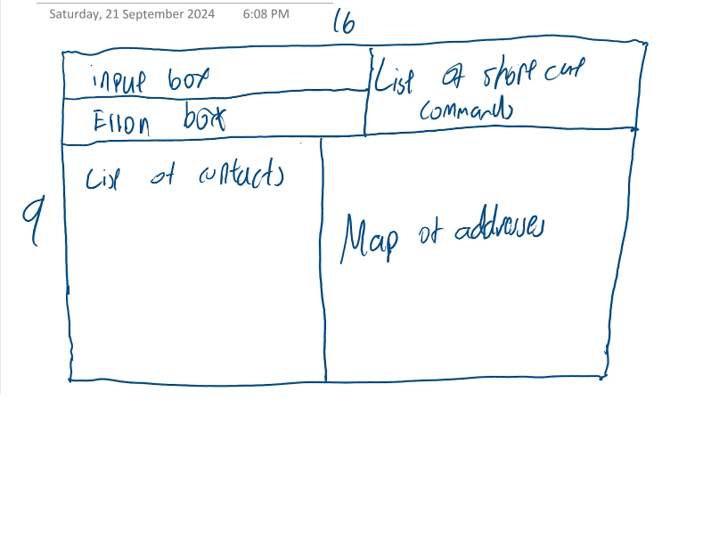 Saturday, 21 September 2024 6:08 PM
16
input box
Error box
List of short cut
commands
9
List of contacts
Map of addresses